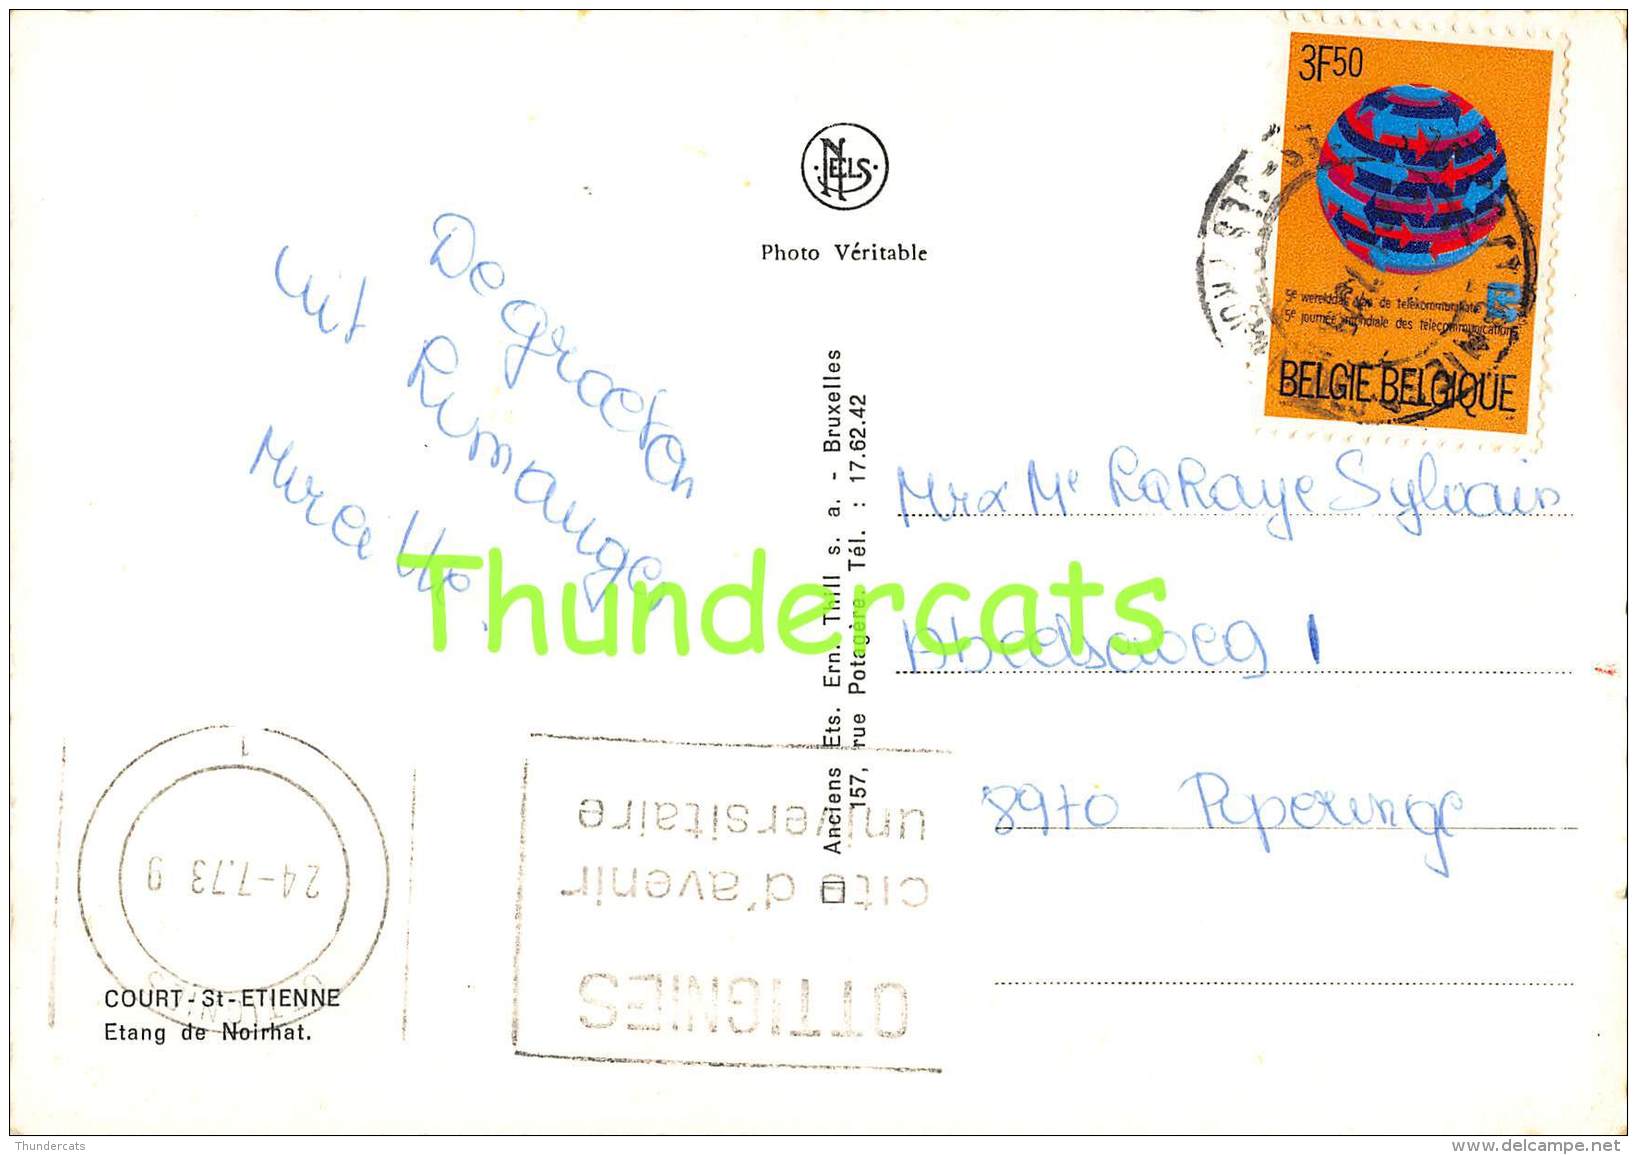 3F50
NELS
Photo Véritable
5e werelddag van de telekommunikatie
5e journée mondiale des télécommunications
BELGIE BELGIQUE
De groeten
uit Rumange
Mireille.
Anciens Ets. Ern. Thill s. a. - Bruxelles
157, rue Potagère. Tél. : 17.62.42
Thundercats
Sylvain
1
8970 Poperinge
1
24-7.73 9
OTTIGNIES
OTTIGNIES
cité d'avenir
universitaire
COURT-St-ETIENNE
Etang de Noirhat.
Thundercats
www.delcampe.net